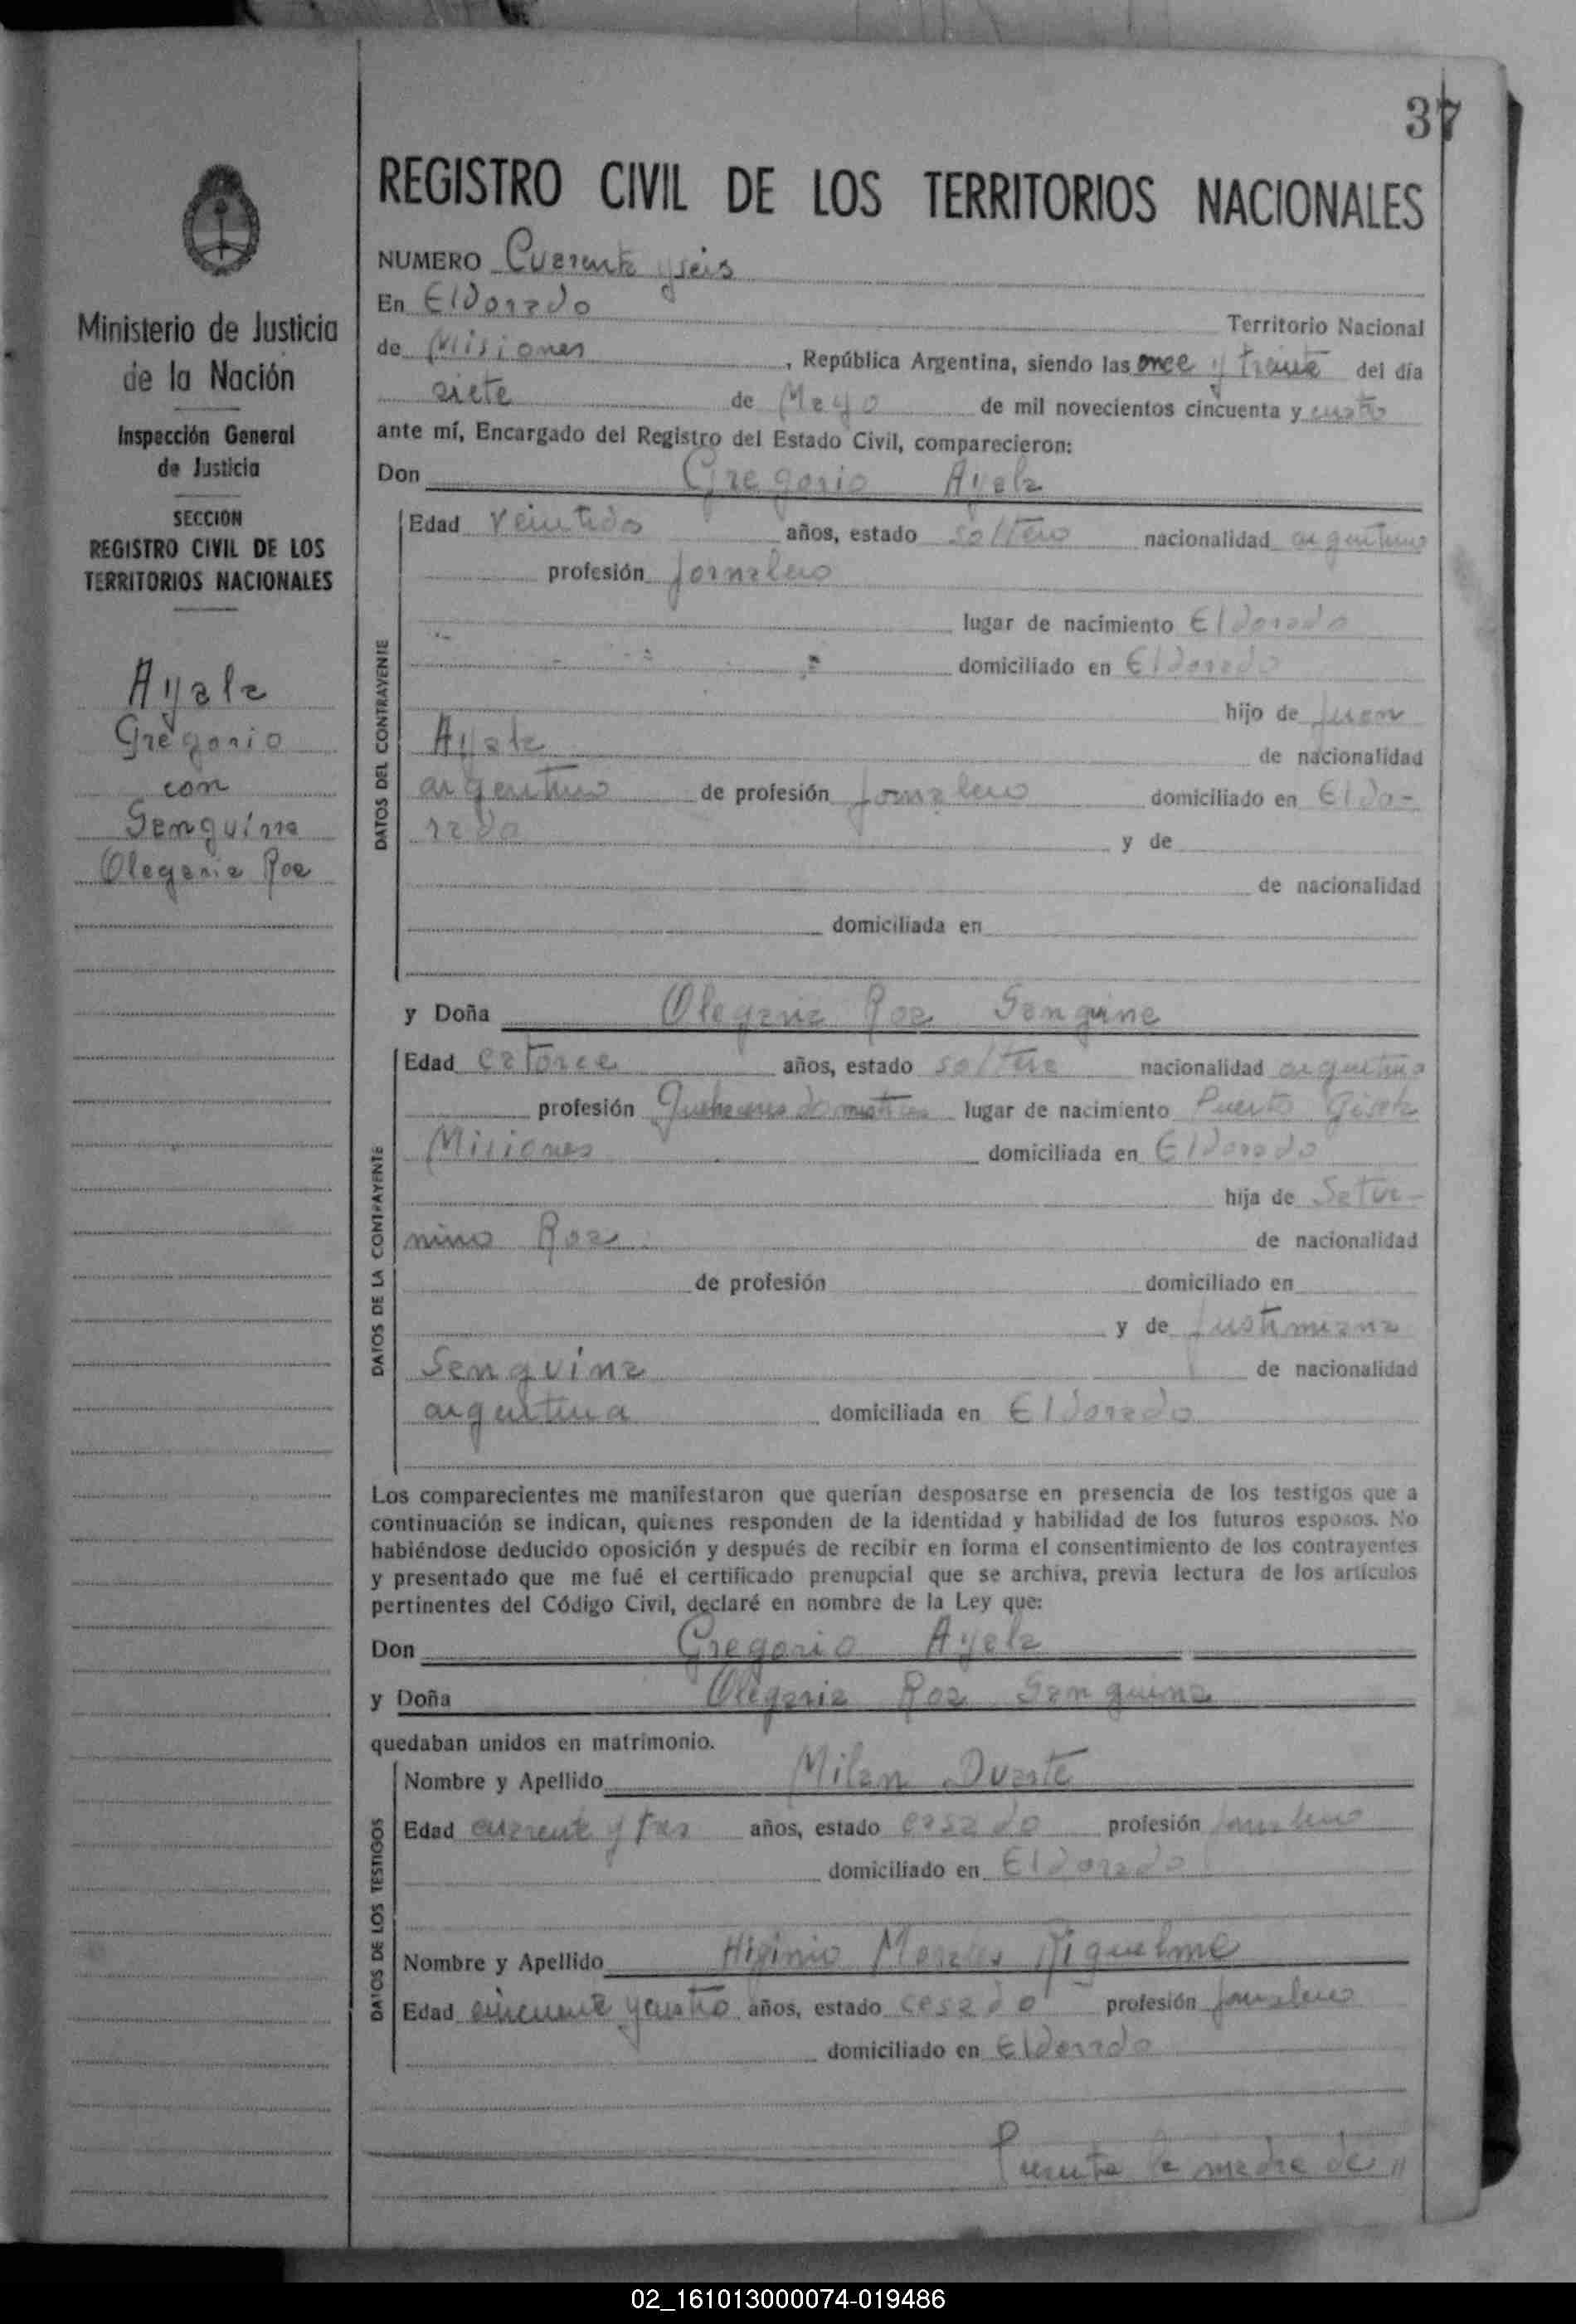 37
REGISTRO CIVIL DE LOS TERRITORIOS NACIONALES
Ministerio de Justicia
de la Nación
Inspección General
de Justicia
SECCION
REGISTRO CIVIL DE LOS
TERRITORIOS NACIONALES
Ayala
Gregorio
con
Sanguina
Olegaria Roa
NUMERO Cuarenta y seis
En Eldorado Territorio Nacional
de Misiones, República Argentina, siendo las once y treinta del día
siete de Mayo de mil novecientos cincuenta y cuatro
ante mí, Encargado del Registro del Estado Civil, comparecieron:
Don Gregorio Ayala
DATOS DEL CONTRAYENTE
Edad veintidos años, estado soltero nacionalidad argentino
profesión Jornalero
lugar de nacimiento Eldorado
domiciliado en Eldorado
hijo de Juan
Ayala de nacionalidad
argentino de profesión Jornalero domiciliado en Eldo-
rado y de
de nacionalidad
domiciliada en
y Doña Olegaria Roa Sanguina
DATOS DE LA CONTRAYENTE
Edad catorce años, estado soltera nacionalidad argentina
profesión Quehaceres domesticos lugar de nacimiento Puerto Gisela
Misiones domiciliada en Eldorado
hija de Satur-
nino Roa de nacionalidad
de profesión domiciliado en
y de Justiniana
Sanguina de nacionalidad
argentina domiciliada en Eldorado
Los comparecientes me manifestaron que querían desposarse en presencia de los testigos que a
continuación se indican, quienes responden de la identidad y habilidad de los futuros esposos. No
habiéndose deducido oposición y después de recibir en forma el consentimiento de los contrayentes
y presentado que me fué el certificado prenupcial que se archiva, previa lectura de los artículos
pertinentes del Código Civil, declaré en nombre de la Ley que:
Don Gregorio Ayala
y Doña Olegaria Roa Sanguina
quedaban unidos en matrimonio.
DATOS DE LOS TESTIGOS
Nombre y Apellido Milan Duarte
Edad cuarenta y tres años, estado casado profesión Jornalero
domiciliado en Eldorado
Nombre y Apellido Higinio Morales Riquelme
Edad cincuenta y cuatro años, estado casado profesión Jornalero
domiciliado en Eldorado
Presente la madre de "
02_161013000074-019486